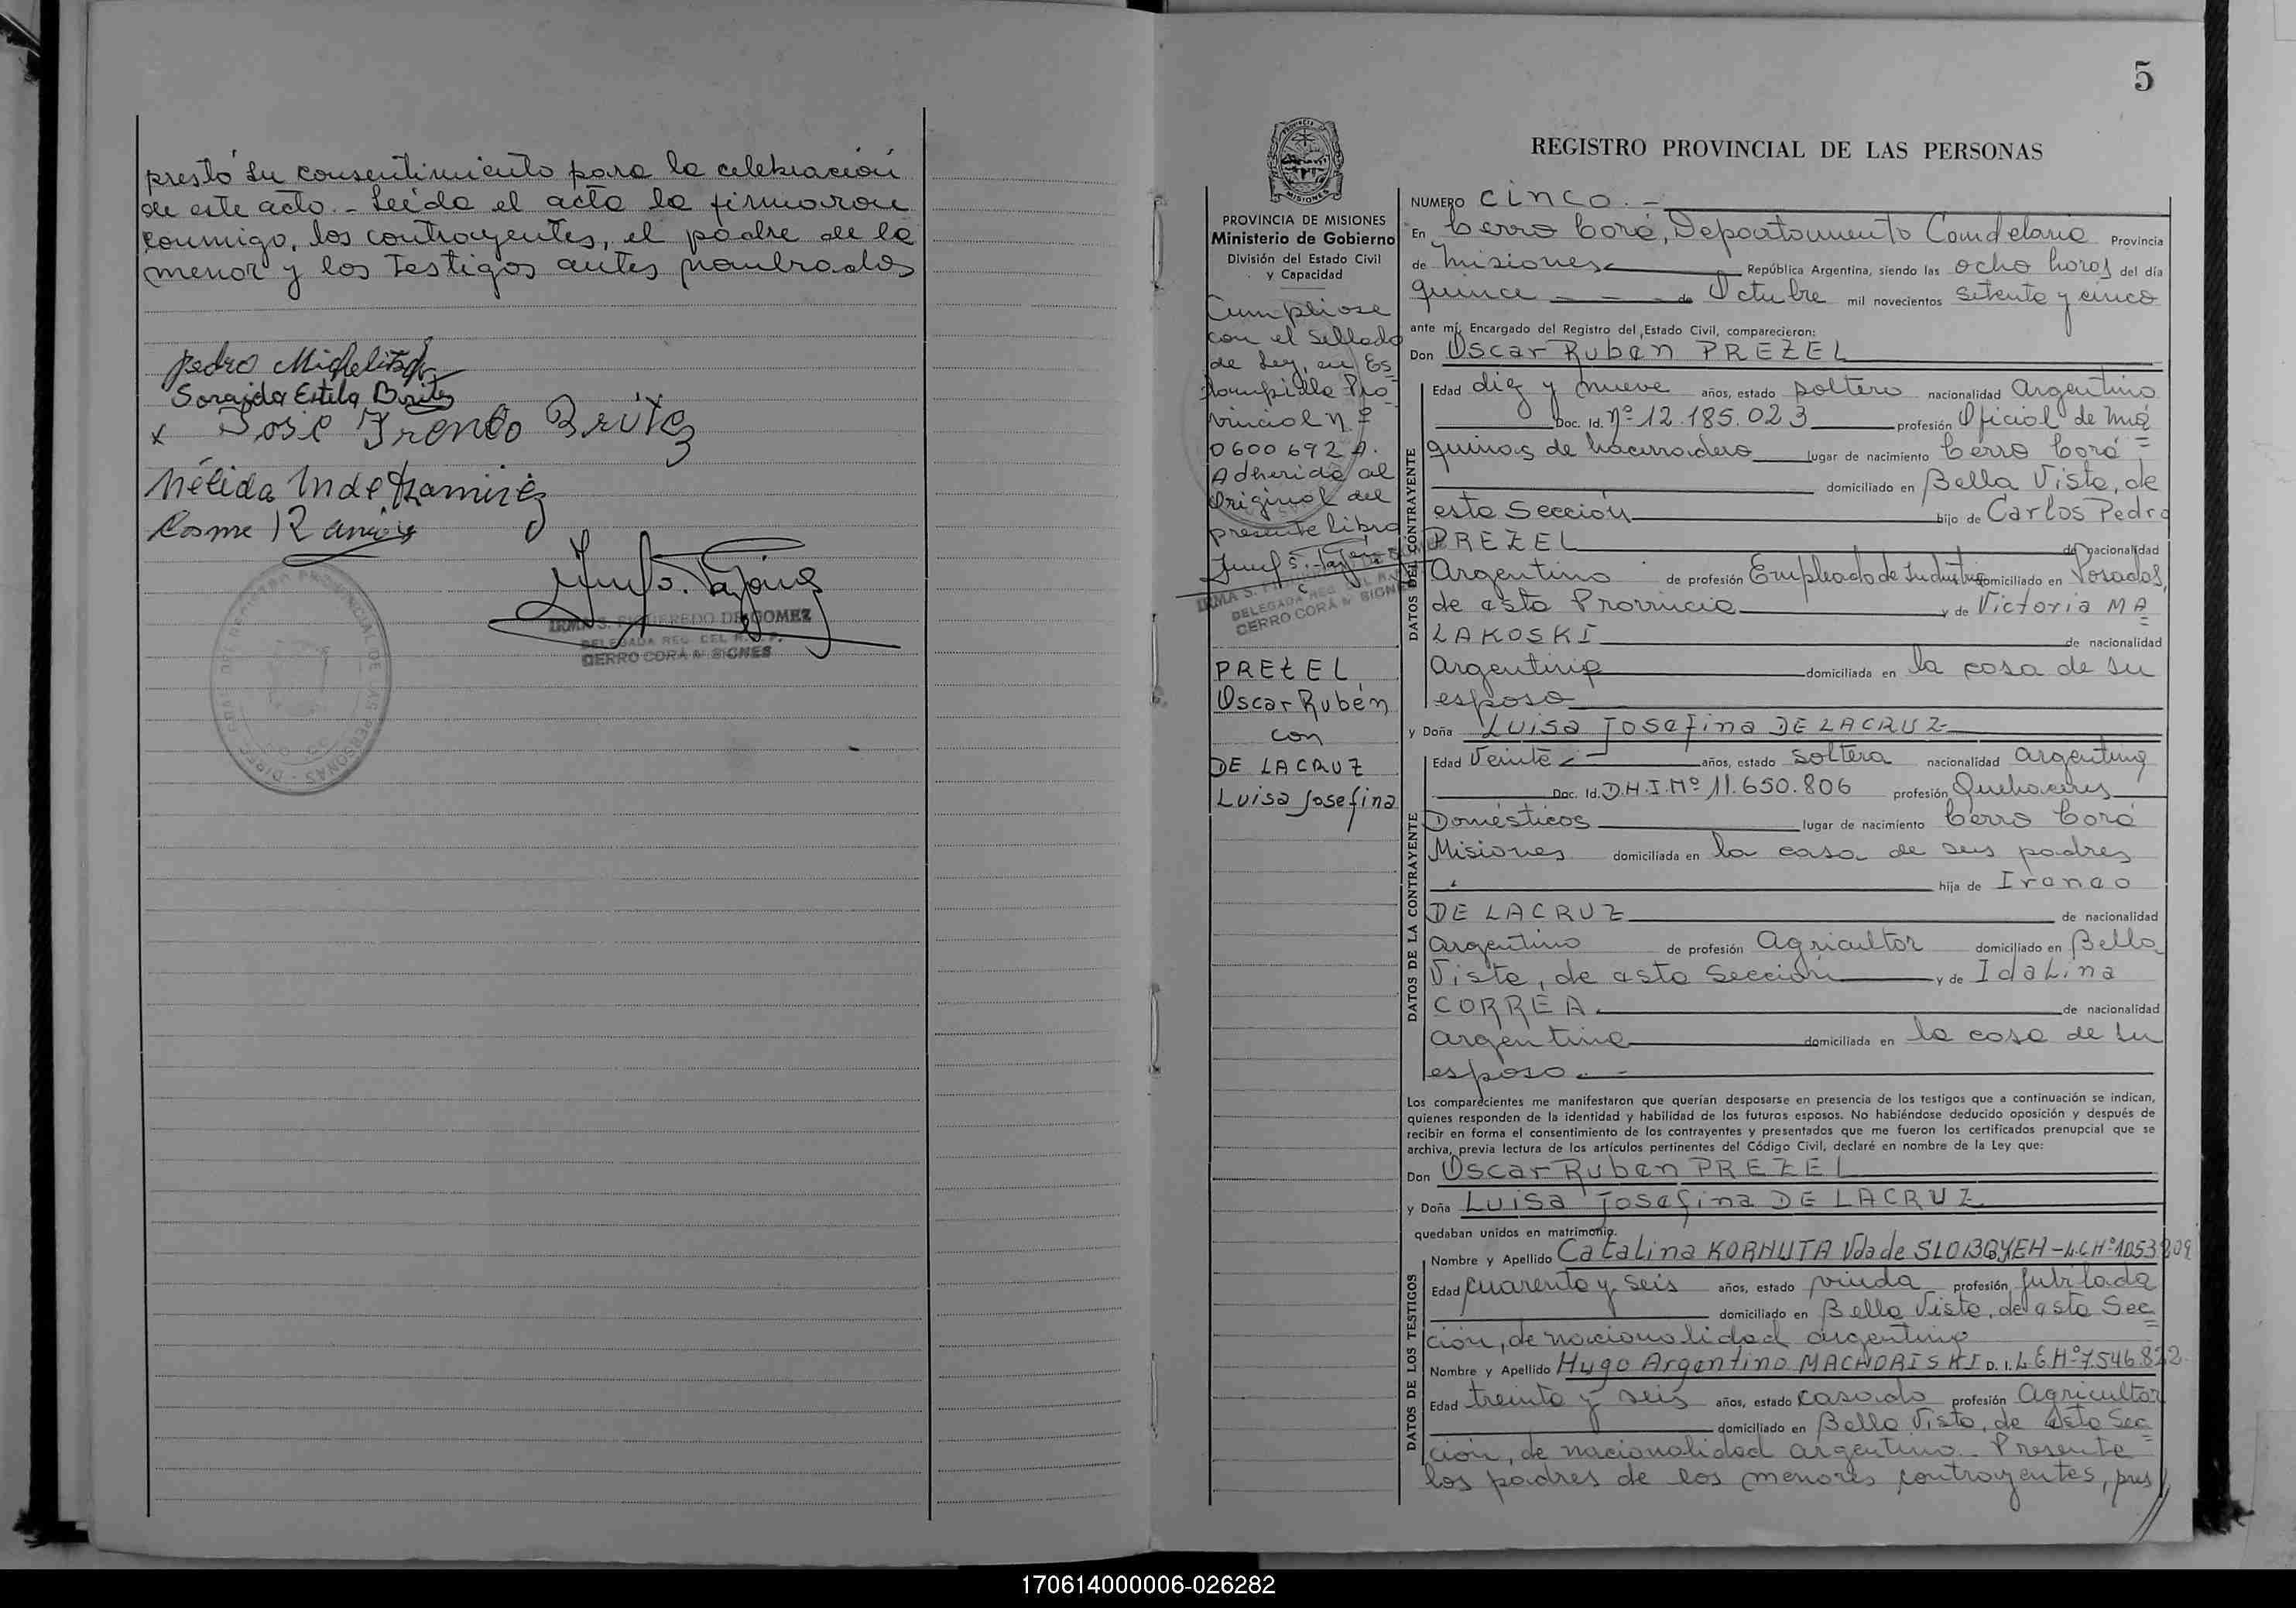 prestó su consentimiento para la celebración
de este acto.- Leída el acta la firmaron
conmigo, los contrayentes, el padre de la
menor y los testigos antes nombrados
Pedro
Soraida Estela Britez
x José Ireneo Britez
Nélida
Cosme
IRMA S. FIGUEREDO DE GOMEZ
DELEGADA REG. DEL R. P. P.
CERRO CORÁ MISIONES
5
PROVINCIA DE MISIONES
Ministerio de Gobierno
División del Estado Civil
y Capacidad
Cumpliose
con el Sellado
de Ley, en Es
tampilla Pro
vincial Nº
0600692 A.
Adherida al
Original del
presente libro
IRMA S.
DELEGADA REG. DEL
CERRO CORÁ MISIONES
PREZEL
Oscar Rubén
con
DE LACRUZ
Luisa Josefina
REGISTRO PROVINCIAL DE LAS PERSONAS
NUMERO CINCO.-
En Cerro Corá, Departamento Candelaria Provincia
de Misiones República Argentina, siendo las ocho horas del día
quince - - - de Octubre mil novecientos setenta y cinco
ante mí, Encargado del Registro del Estado Civil, comparecieron:
Don Oscar Rubén PREZEL
DATOS DEL CONTRAYENTE
Edad diez y nueve años, estado soltero nacionalidad Argentino
Doc. Id. Nº 12.185.023 profesión Oficial de Má
quinas de hacerradero lugar de nacimiento Cerro Corá
domiciliado en Bella Vista, de
esta Sección hijo de Carlos Pedro
PREZEL de nacionalidad
Argentino de profesión Empleado de Industria domiciliado en Posadas,
de esta Provincia y de Victoria MA
LAKOSKI de nacionalidad
Argentina domiciliada en la casa de su
esposo
y Doña Luisa Josefina DE LACRUZ
DATOS DE LA CONTRAYENTE
Edad veinte años, estado soltera nacionalidad Argentina
Doc. Id. D.N.I.Nº 11.650.806 profesión Quehaceres
Domésticos lugar de nacimiento Cerro Corá
Misiones domiciliada en la casa de sus padres
hija de Ireneo
DE LACRUZ de nacionalidad
Argentino de profesión Agricultor domiciliado en Bella
Vista, de esta Sección y de Idalina
CORREA. de nacionalidad
argentina domiciliada en la casa de su
esposo.-
Los comparecientes me manifestaron que querían desposarse en presencia de los testigos que a continuación se indican,
quienes responden de la identidad y habilidad de los futuros esposos. No habiéndose deducido oposición y después de
recibir en forma el consentimiento de los contrayentes y presentados que me fueron los certificados prenupcial que se
archiva, previa lectura de los artículos pertinentes del Código Civil, declaré en nombre de la Ley que:
Don Oscar Rubén PREZEL
y Doña Luisa Josefina DE LACRUZ
quedaban unidos en matrimonio.
DATOS DE LOS TESTIGOS
Nombre y Apellido Catalina KORNUTA Vda de SLOBOYEN -L.C Nº1053809
Edad cuarenta y seis años, estado viuda profesión Jubilada
domiciliado en Bella Vista, de esta Sec
ción, de nacionalidad argentina
Nombre y Apellido Hugo Argentino MACNORISKI D. I. L.E.Nº7.546.822
Edad treinta y seis años, estado casado profesión Agricultor
domiciliado en Bella Vista, de esta Sec
ción, de nacionalidad argentino - Presente
los padres de los menores contrayentes, pres
170614000006-026282